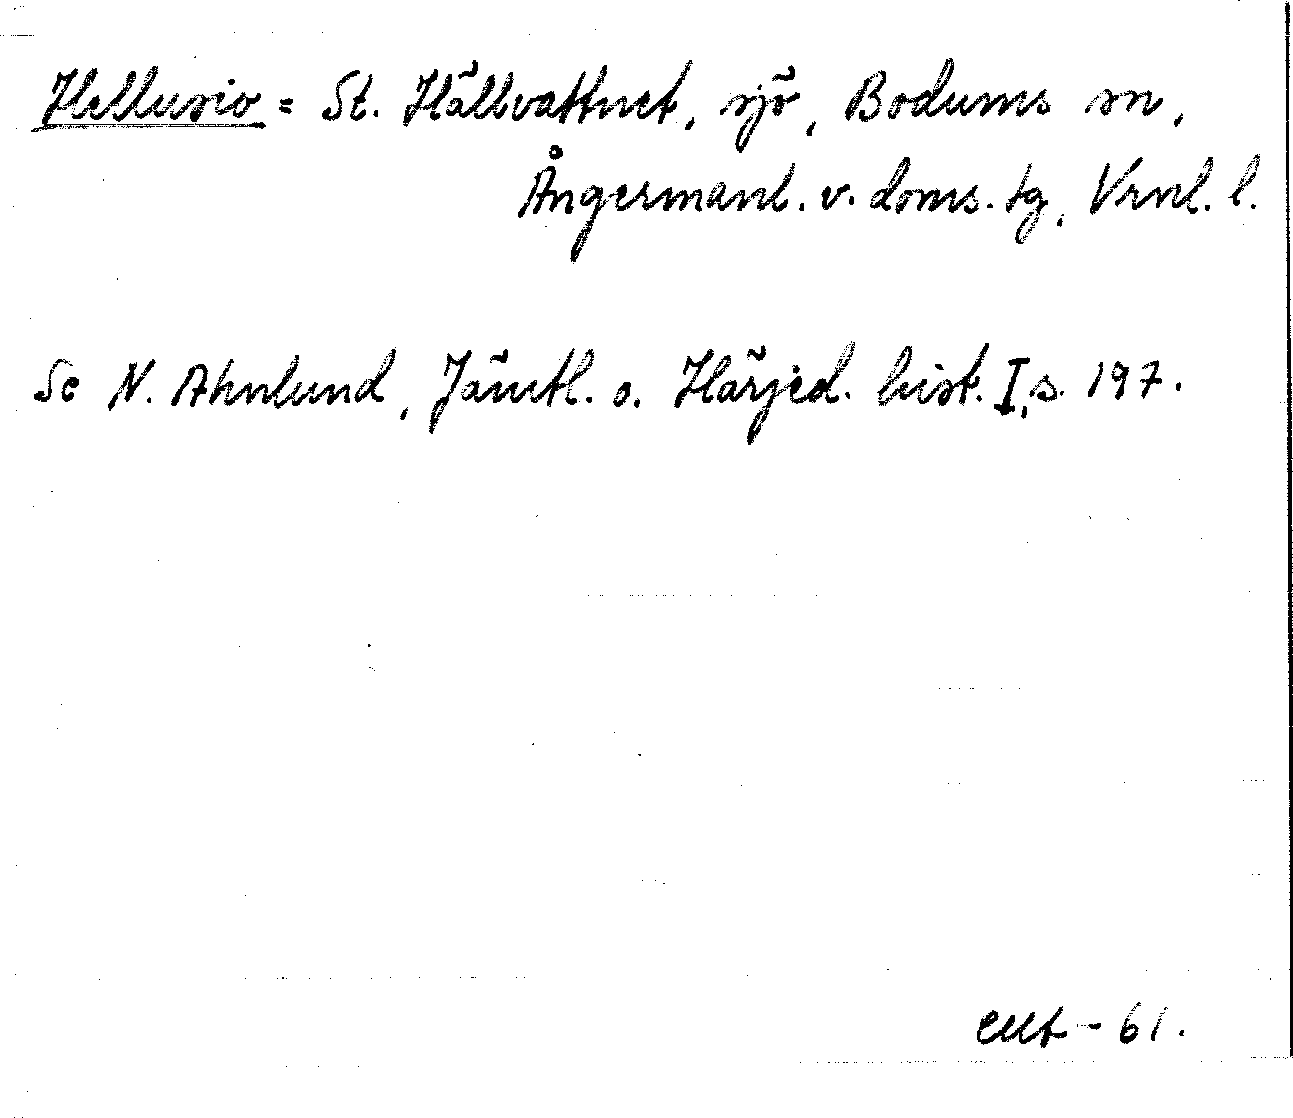 Hellusio = St. Hällvattnet, sjö, Bodums sn,
Ångermanl. v. doms. tg, Vrnl. l.
Se N. Ahnlund, Jämtl. o. Härjed. hist. I, s. 197.
- 61.